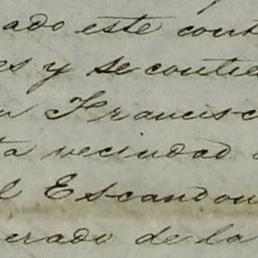 ado este cont
es y se contie
n Francisc
ta vecindad
l Escandon
erado de la